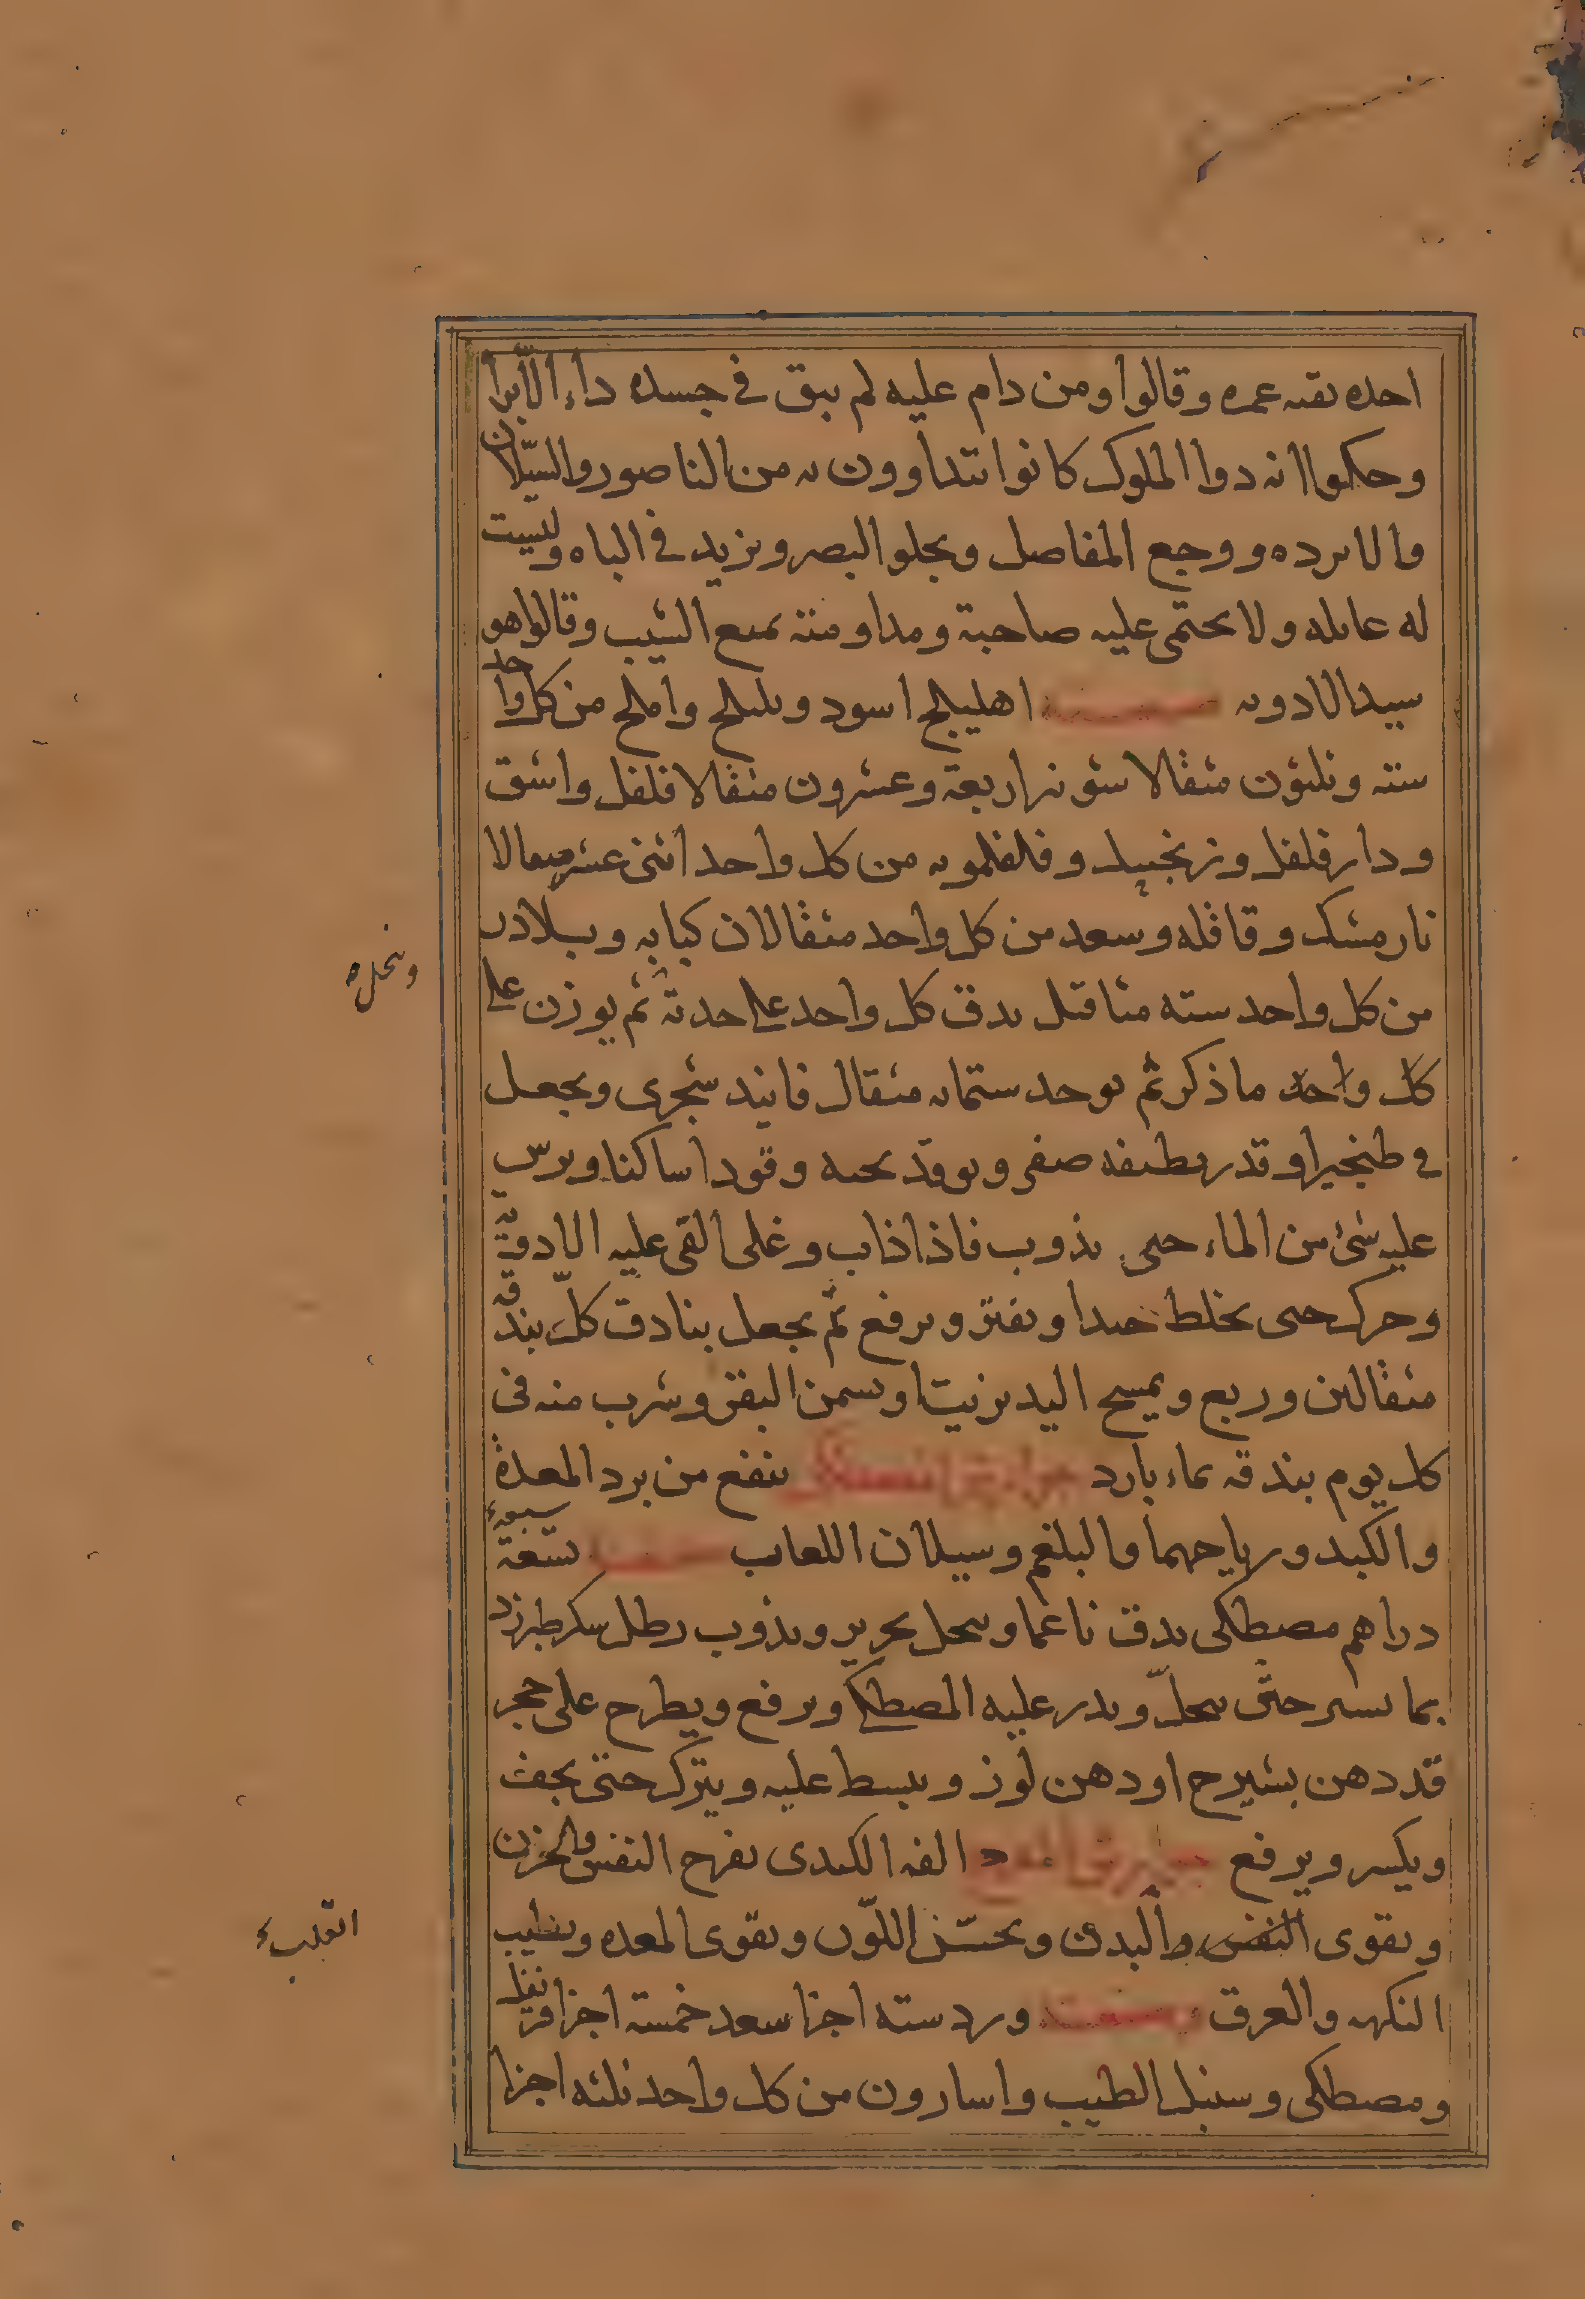 احده بقيه عمره وقالوا ومن دام عليه لم يبق في جسده داء الا ابرا
وحكوا انه دوا الملوك كانوا يتداوون به من الناصور والسيلان
والابرده ووجع المفاصل ويجلو البصر ويزيد في الباه وليست
له عايله ولا يحتمى عليه صاحبة ومداومته يمنع الشيب وقالوا هو
سيد الادويه اهليلج اسود وبليلج واملج من كل واحد
سته وثلثون مثقالا شونيز اربعة وعشرون مثقالا فلفل واشق
ودارفلفل وزنجبيل وفلفلمويه من كل واحد اثنى عشر مثقالا
نارمشك وقاقله وسعد من كل واحد مثقالان كبابه وبلادر
من كل واحد سته مثاقيل يدق كل واحد على حدته ثم يوزن على
كل واحد ما ذكر ثم يوخد ستمايه مثقال فانيد سجرى ويجعل
في طنجير او قدر نظيفه صفر ويوقد تحته وقودا ساكنا ويرس
عليه شئ من الماء حتى يذوب فاذا ذاب وغلى القى عليه الادوية
وحرك حتى يختلط جيدا ويفتر ويرفع ثم يجعل بنادق كل بندقه
مثقالين وربع ويمسح اليد بزيت او بسمن البقر وشرب منه في
كل يوم بندقه بماء بارد ينفع من برد المعدة
والكبد ورياحهما والبلغم وسيلان اللعاب تسعة سبعة
دراهم مصطكى يدق ناعما وينخل بحرير ويذوب رطل سكر طبرزد
بما يسير حتى ينحل ويذر عليه المصطكا ويرفع ويطرح على حجر
قد دهن بشيرج او دهن لوز ويبسط عليه ويترك حتى يجف
ويكسر ويرفع الفه الكندى يفرح النفس والحزن
ويقوى النفس والبدن ويحسن اللون ويقوى المعده ويطيب
النكهه والعرق ورد سته اجزا سعد خمسة اجزا قرنفل
ومصطكى وسنبل الطيب واسارون من كل واحد ثلثه اجزا
وينخله
القلب